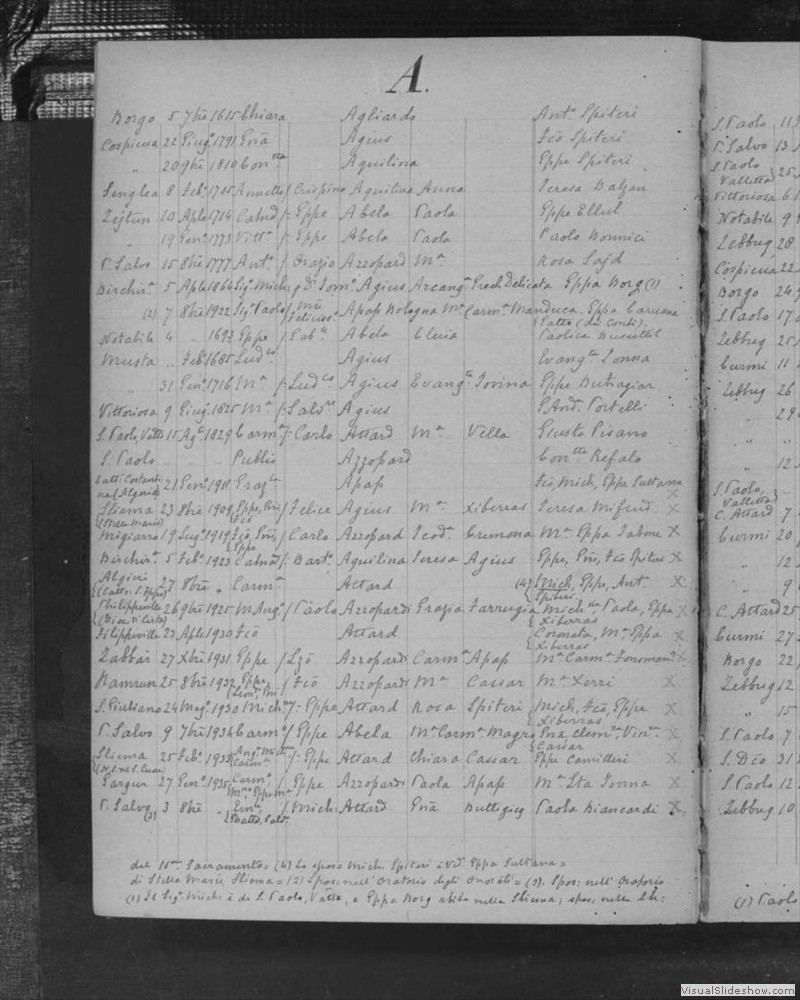 A.
Borgo 5 7bre 1615 Chiara Agliardo Ant.a Spiteri
Cospicua 22 Giug.o 1791 Gnã Agius Fcõ Spiteri
" 20 9bre 1810 Con.tta Aquilina Eppe Spiteri
Senglea 8 Feb.o 1705 Annetto / Crispino Aquilina Anna Teresa Balzan
Zejtun 10 Aple 1714 Catnd /- Eppe Abela Paola Eppe Ellul
" 19 Gen.o 1773 Vitt.a /- Eppe Abela Paola Paolo Bonnici
P. Salvo 15 8bre 1777 Ant.a /- Orazio Azzopard M.a Rosa Sajd
Birchir.a 5 Aple 1864 Sig. Mich. / Dr Tom.o Agius Arcang.a Grech Delicata Eppa Borg (1)
(2) 7 8bre 1922 Sig. Paolo / Felicissi.o Apap Bologna M.a Carm.a Manduca Eppa Caruana
Gatto (dei Conti).
Notabile 4 " 1693 Eppe / Gab.e Abela Cleria Paolica Busuttil
Musta .. Feb.o 1685 Lud.co Agius Evang.ta Zonna
" 31 Gen.o 1716 M.a /- Lud.co Agius Evang.ta Tonna Eppe Butigiar
Vittoriosa 9 Giug.o 1825 M.a /- Salv.re Agius And. Portelli
S. Paolo, Vatta 15 Ag.o 1829 Carm.a /- Carlo Attard M.a Villa Giusto Pisano
S. Paolo Publio Azzopard Con.tta Refalo
Catt. Costantina (Algeria) 21 Gen.o 1911 Graz.a Apap Fcõ, Mich, Eppe Sultana X
Sliema (Stella Maris) 23 8bre 1909 Eppe, Gnã Fcõ / Felice Agius M.a Xiberras Teresa Mifsud X
Migiarro 19 Lug.o 1919 Fcõ, Gnã, Eppe / Carlo Azzopard Teod.a Cremona M.a Eppa Tabone X
Birchir.a 5 Feb.o 1923 Catnd /- Bart.o Aquilina Teresa Agius Eppe, Gnã, Fcõ Spiteri X
Algieri (Catt. S. Filippo) 27 8bre " Carm.a Attard (4) Mich, Eppe, Ant.a Spiteri X
Philippeville 26 9bre 1925 M Ang.a / Paolo Azzopardi Grazia Farrugia Mich.le Paola, Eppa Xiberras X
Filippeville 23 Aple 1930 Fcõ Attard Coronata, M.a Eppa Xiberras X
Zabbar 27 Xbre 1931 Eppe / Lzõ Azzopardi Carm.a Apap M.a Carm.a X
Hamrun 25 8bre 1932 Eppe, / Fcõ Azzopardi M.a Cassar M.a Xerri X
S. Giuliano 24 Mag.o 1930 Mich /- Eppe Attard Rosa Spiteri Mich, Fcõ, Eppe Xiberras X
P. Salvo 9 7bre 1934 Carm.a / Eppe Abela M.a Carm.a Magro Gnã, Clem.a Vin.a Cassar X
Sliema 25 Feb.o 1935 Ang. Mich. Carm.a /- Eppe Attard Chiara Cassar Eppe Camilleri X
Gargur 27 Gen.o 1935 Carm.o / Eppe Azzopardi Paola Apap M.a Sta Tonna X
P. Salvo (3) 3 8bre " Em.le / Mich. Attard Gnã Buttigieg Paola Biancardi X
del SS.mo Sacramento = (4) Lo sposo Mich. Spiteri è Vdo Eppa Sultana =
di Stella Maris, Sliema = (2) Spos: nell' Oratorio degli Onorati = (3). Spos: nell' Oratorio
(1) Il Sig. Mich: è di S. Paolo, Vatta, e Eppa Borg abita nella Sliema; spos: nella Ch:
S. Paolo 11
P. Salvo 13
S. Paolo Valletta 25
Vittoriosa 6
Notabile 9
Zebbug 28
Cospicua 22
Borgo 24
S. Paolo 17
Zebbug 25
Curmi 11
Zebbug 26
" 29
" "
" 12
S. Paolo, Valletta -
C. Attard 7
Curmi 20
" 12
" 9
C. Attard 25
Curmi 27
Borgo 22
Zebbug 12
" 15
S. Paolo 7
S. Dcõ 31
S. Paolo 12
Zebbug 10
(1) Paolo
VisualSlideshow.com